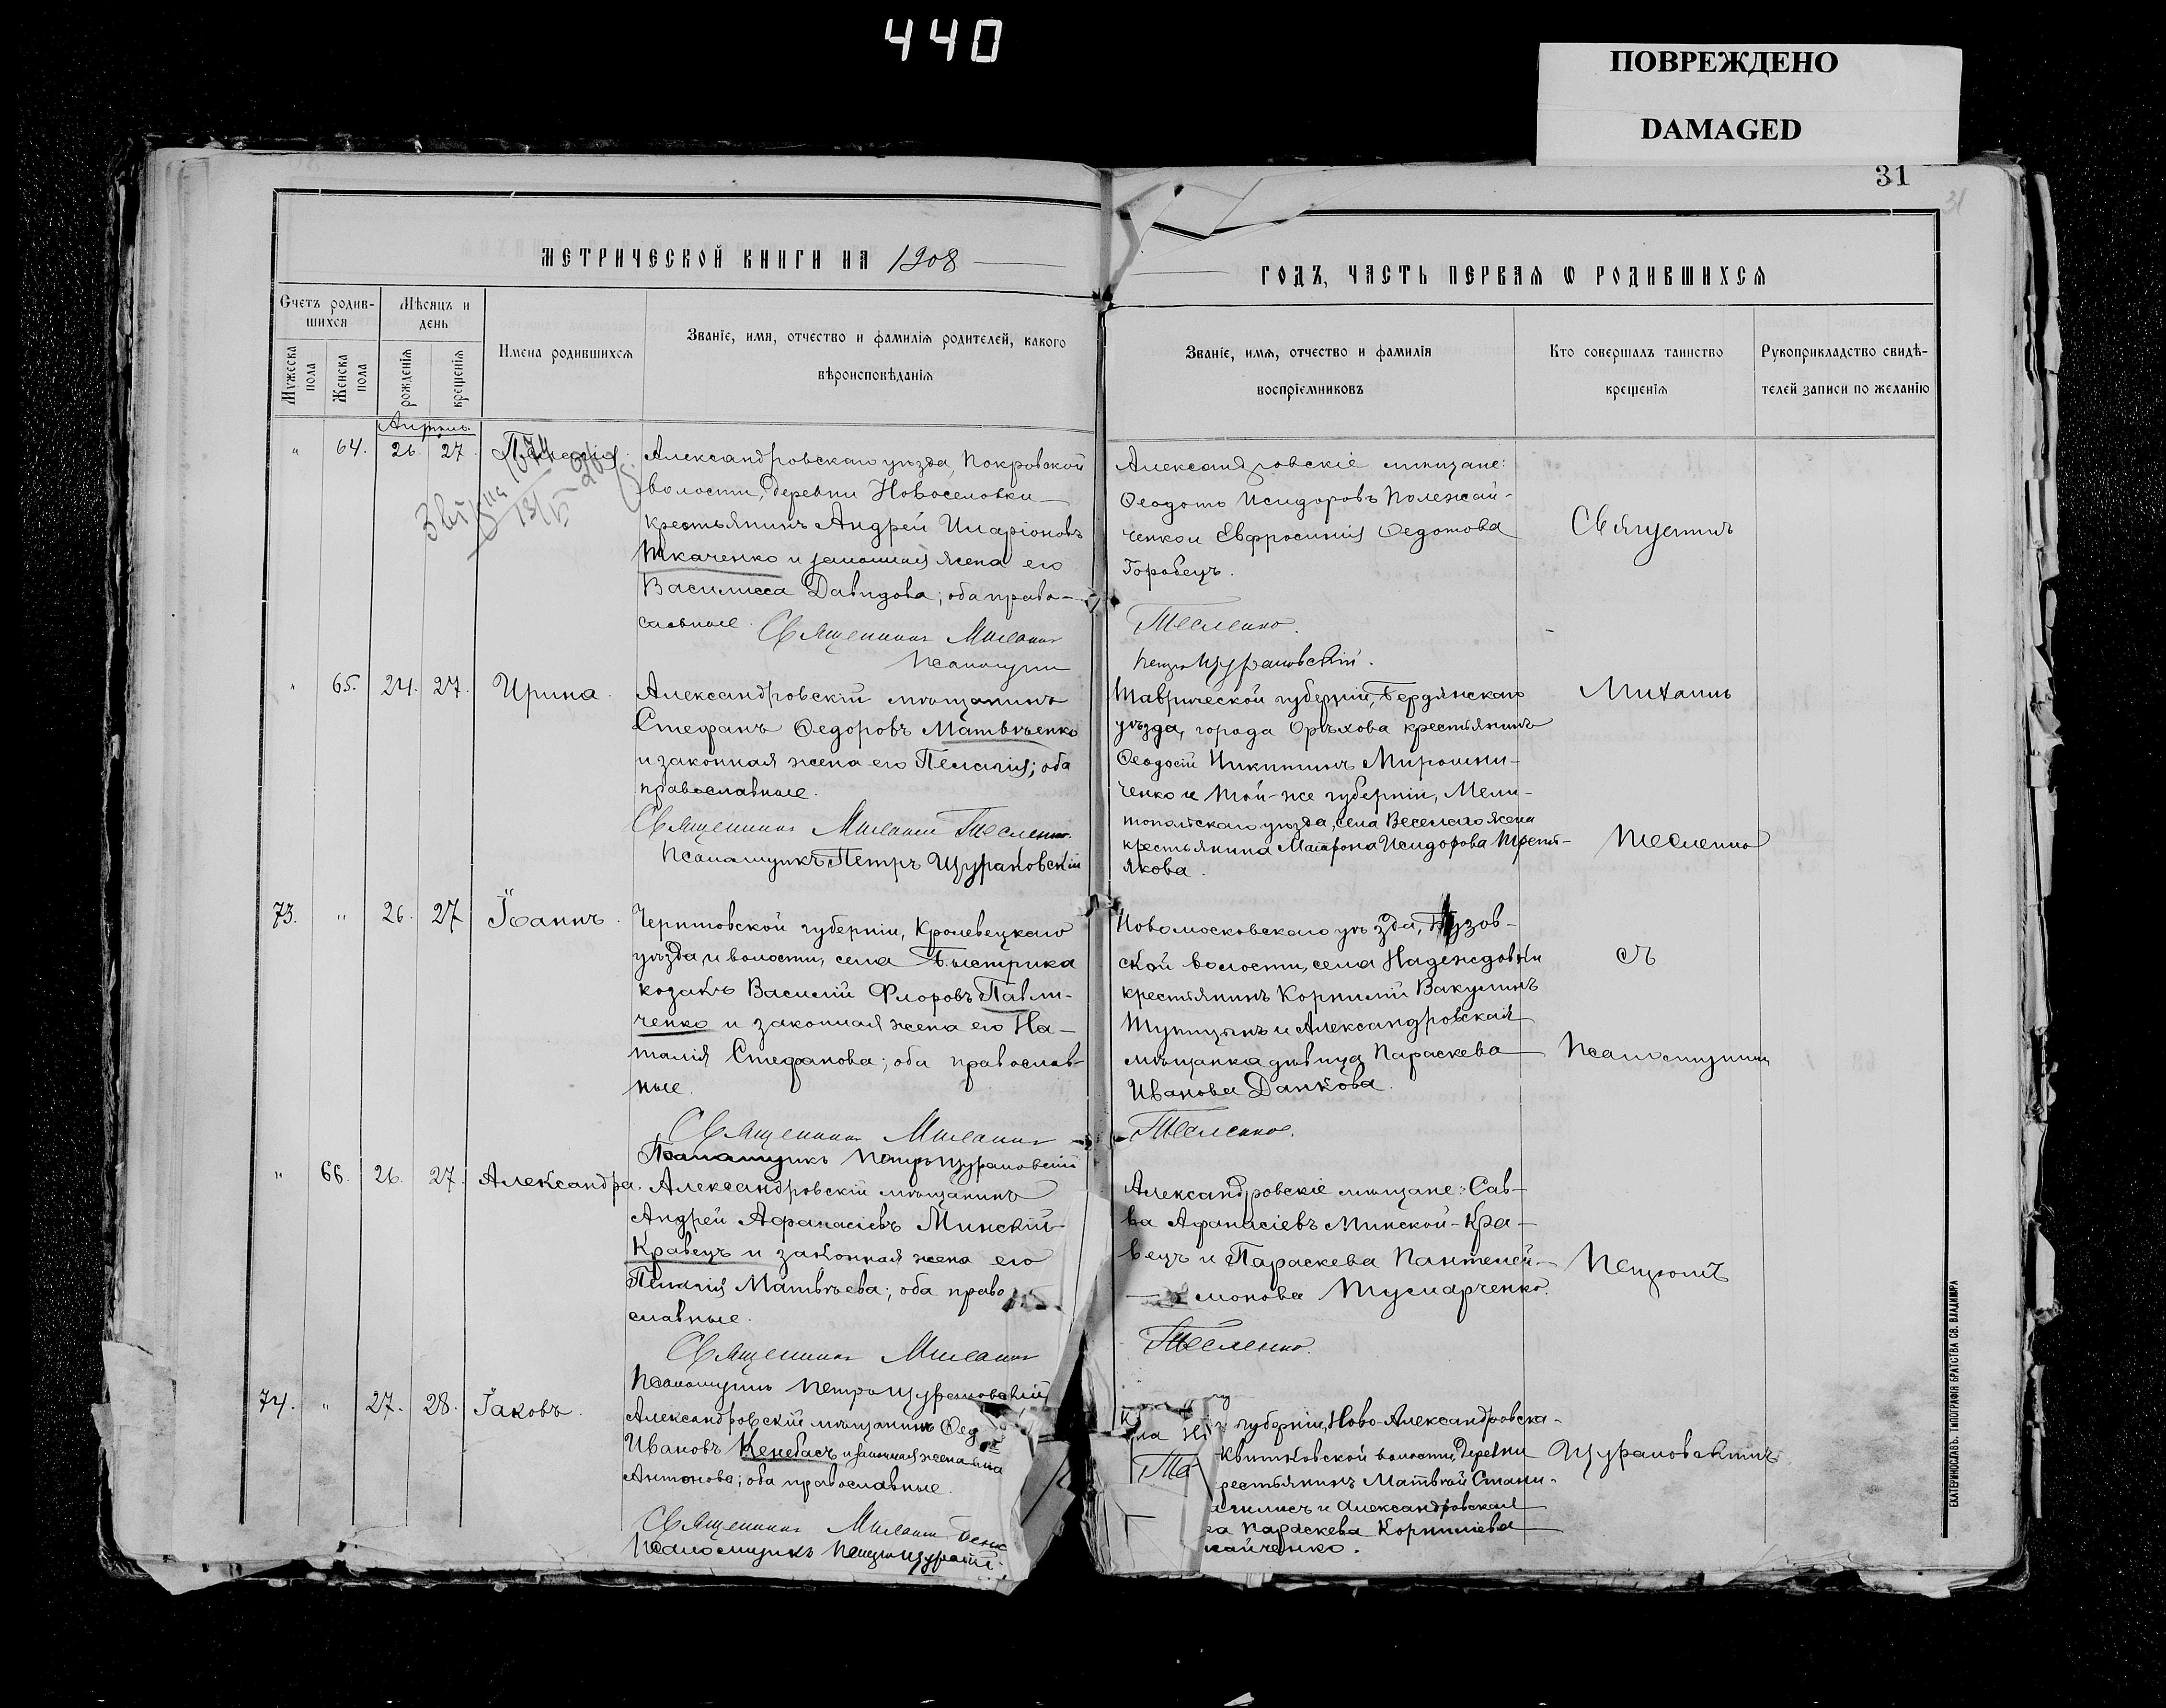 440
ПОВРЕЖДЕНО
DAMAGED
31
31
МЕТРИЧЕСКОЙ КНИГИ НА 1908
ГОДЪ, ЧАСТЬ ПЕРВАЯ Ѡ РОДИВШИХСЯ
Счетъ родив-
шихся
Мѣсяцъ и
день
Мужеска
пола
Женска
пола
рожденія
крещенія
Имена родившихся
Званіе, имя, отчество и фамилія родителей, какого
вѣроисповѣданія
Званіе, имя, отчество и фамилія
воспріемниковъ
Кто совершалъ таинство
крещенія
Рукоприкладство свидѣ-
телей записи по желанію
Апрѣль.
" 64. 26. 27
Александровскаго уѣзда, Покровской
волости, деревни Новоселовки
крестьянинъ Андрей Иларіоновъ
Ткаченко и законная жена его
Василисса Давидова; оба право-
славные.
Священникъ Михаилъ
Псаломщикъ
Александровскіе мѣщане:
Ѳеодотъ Исидоровъ Полежай-
ченко и Евфросинія Ѳедотова
Горобецъ.
Тесленко.
Петръ Щурановскій.
" 65. 24. 27. Ирина.
Александровскій мѣщанинъ
Стефанъ Ѳедоровъ Матвѣенко
и законная жена его Пелагія; оба
православные.
Священникъ Михаилъ Тесленко.
Псаломщикъ Петръ Щурановскій
Таврической губерніи, Бердянскаго
уѣзда, города Орѣхова крестьянинъ
Ѳеодосій Никитинъ Мирошни-
ченко и той-же губерніи, Мели-
топольскаго уѣзда, села Веселаго жена
крестьянина Матрона Исидорова Треть-
якова.
73. " 26. 27 Іоаннъ.
Черниговской губерніи, Кролевецкаго
уѣзда и волости, села Быстрика
козакъ Василій Флоровъ Павли-
ченко и законная жена его На-
талія Стефанова; оба православ-
ные.
Священникъ Михаилъ
Псаломщикъ Петръ Щурановскій
Новомосковскаго уѣзда, Бузов-
ской волости, села Надеждовки
крестьянинъ Корнилій Вакулинъ
Тупицынъ и Александровская
мѣщанка дѣвица Параскева
Иванова Данкова.
Тесленко.
" 66. 26. 27. Александра.
Александровскій мѣщанинъ
Андрей Аѳанасіевъ Минскій-
Кравецъ и законная жена его
Пелагія Матвѣева; оба право
славные.
Священникъ Михаилъ
Псаломщикъ Петръ Щурановскій
Александровскіе мѣщане: Сав-
ва Аѳанасіевъ Минской-Кра-
вецъ и Параскева Пантелей-
монова
Тесленко.
74. " 27. 28. Іаковъ.
Александровскій мѣщанинъ Ѳед
Ивановъ Кенебасъ и законная жена
Антонова; оба православные.
Священникъ Михаилъ
Псаломщикъ Петръ
губерніи, Ново-Александровска-
волости, деревни
рестьянинъ Матвѣй Стани-
и Александровская
Параскева Корниліева
Священникъ
Михаилъ
Тесленко
съ
Псаломщикомъ
Петромъ
Щурановскимъ.
ЕКАТЕРИНОСЛАВЪ. ТИПОГРАФІЯ БРАТСТВА СВ. ВЛАДИМІРА